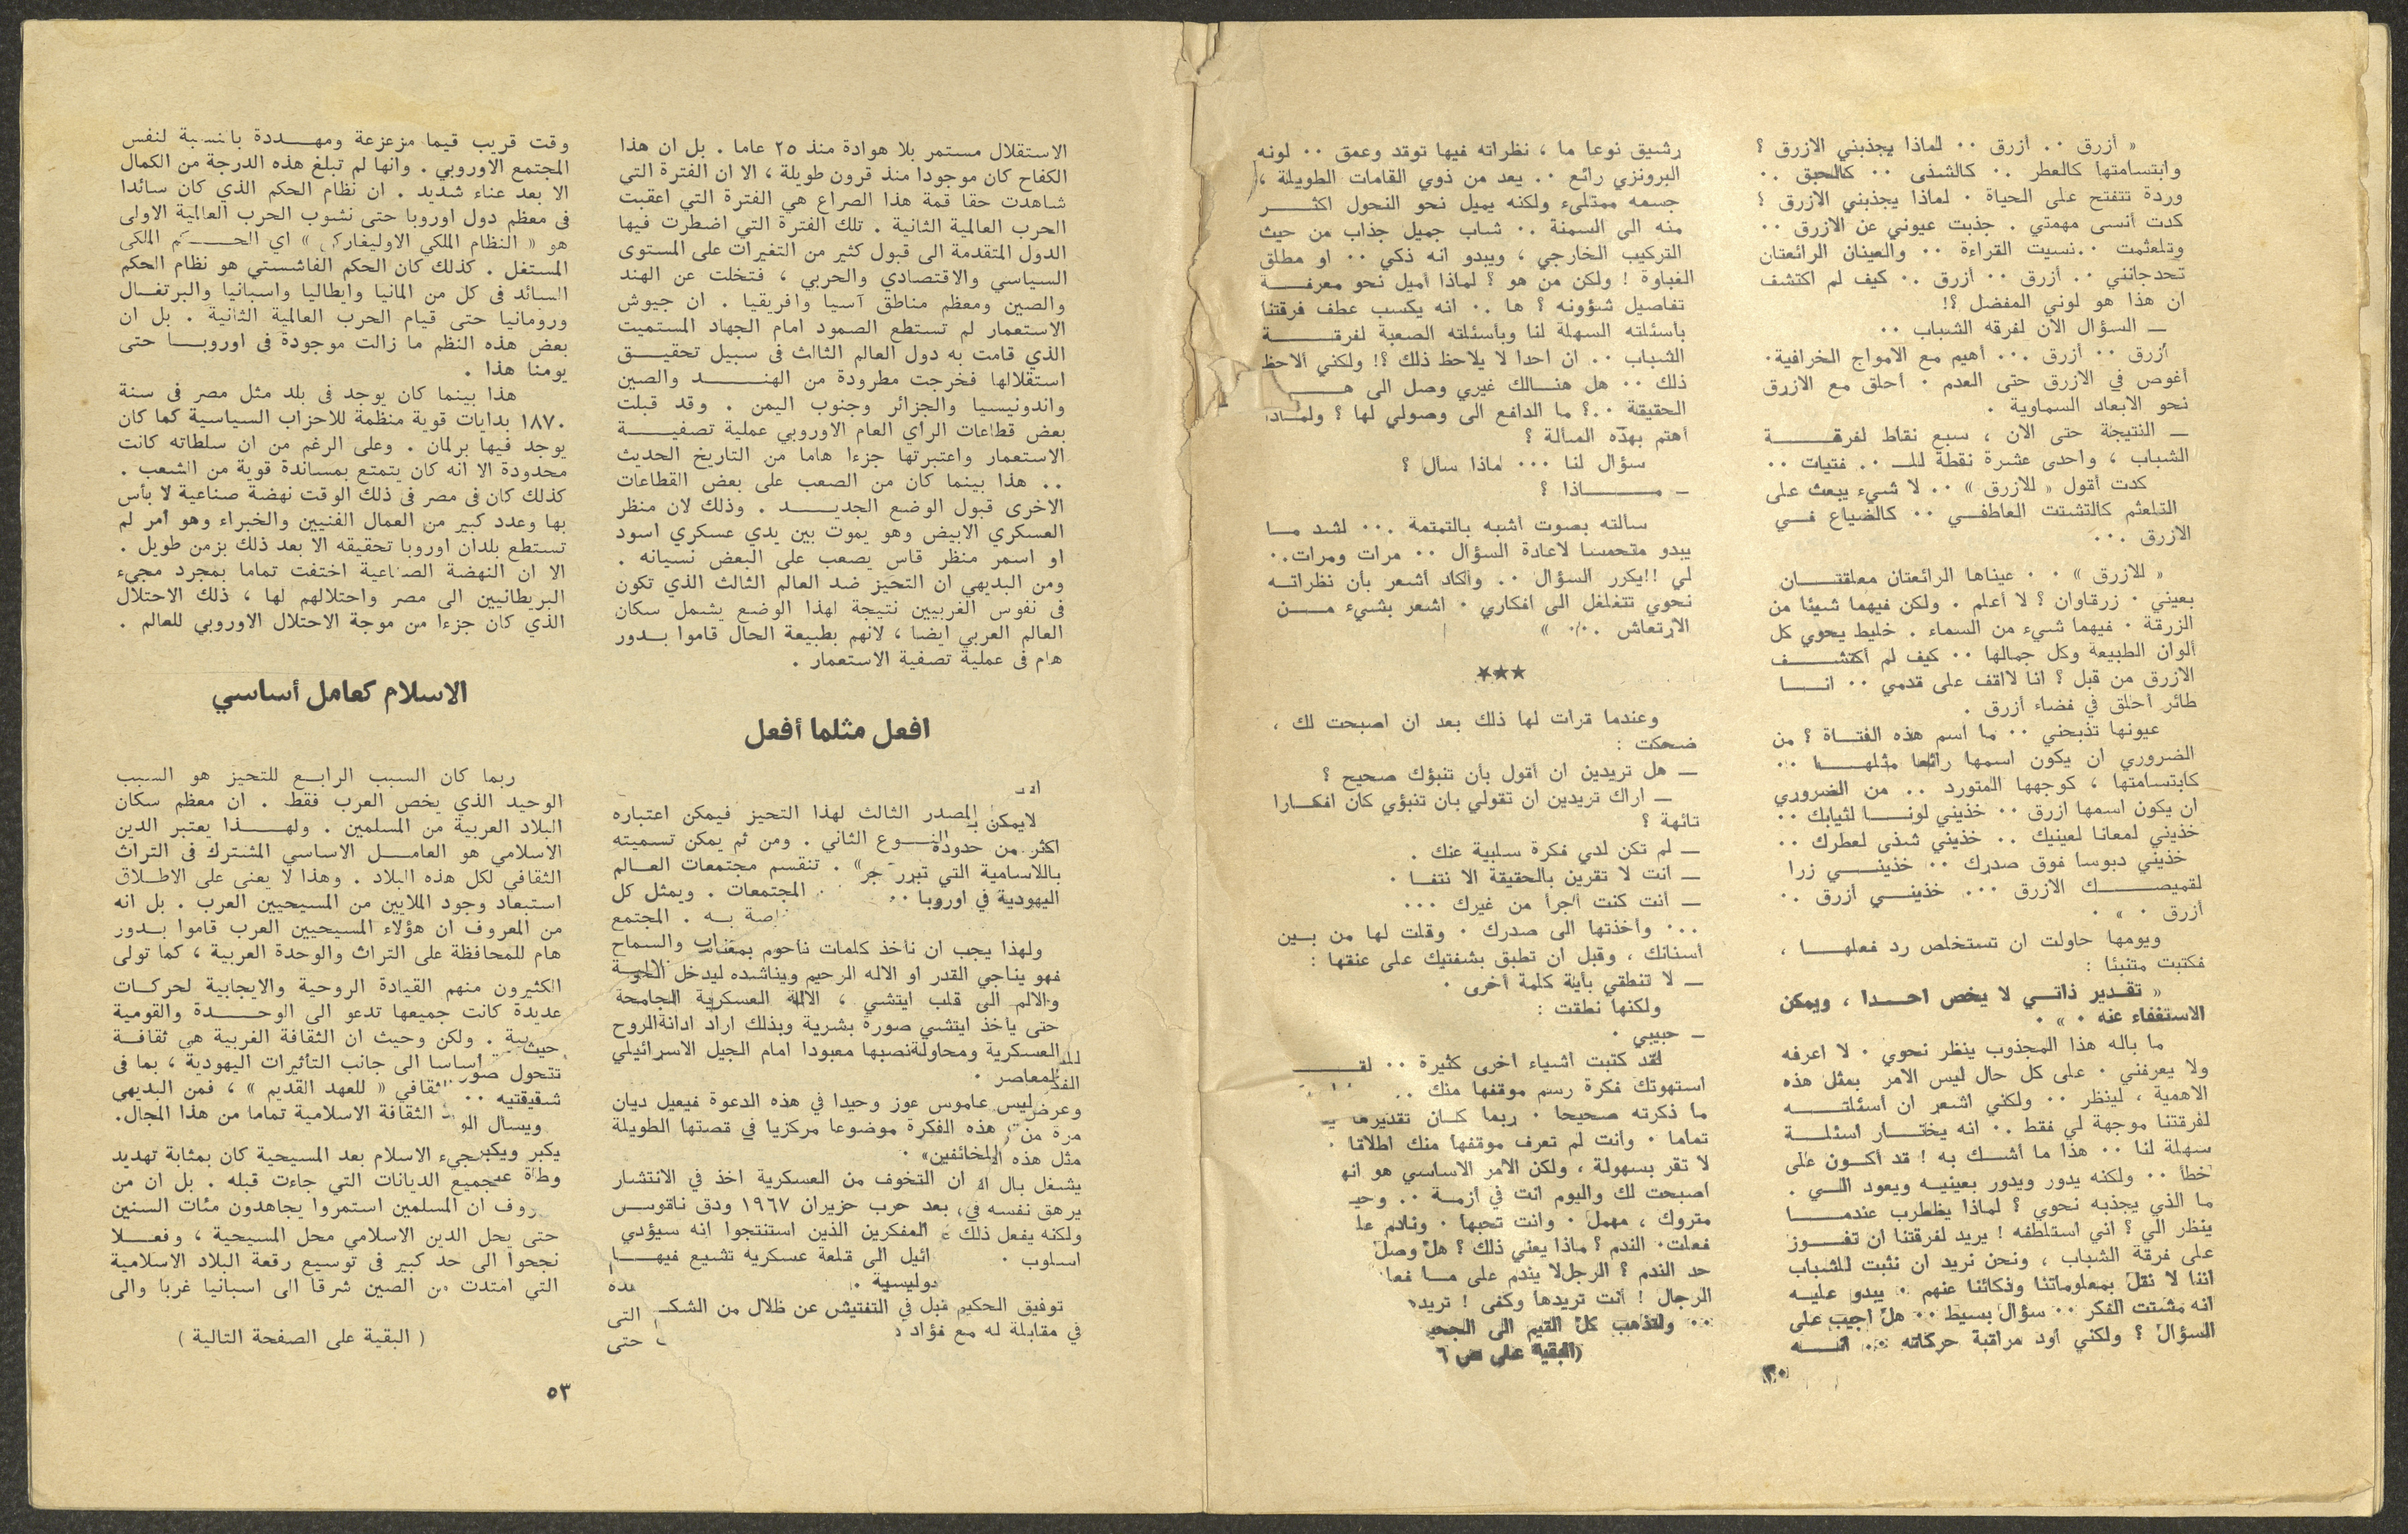 « أزرق ٠٠ أزرق ٠٠ لماذا يجذبني الازرق ؟
وابتسامتها كالعطر ٠٠ كالشذى ٠٠ كالحبق ٠٠
وردة تتفتح على الحياة ٠ لماذا يجذبني الازرق ؟
كدت أنسى مهمتي ٠ جذبت عيوني عن الازرق ٠٠
وتلعثمت ٠٠ نسيت القراءة ٠٠ والعينان الرائعتان
تحدجانني ٠٠ أزرق ٠٠ أزرق ٠٠ كيف لم اكتشف
ان هذا هو لوني المفضل ؟!
ــ السؤال الان لفرقه الشباب ٠٠
أزرق ٠٠ أزرق ٠٠٠ أهيم مع الامواج الخرافية٠
أغوص في الازرق حتى العدم ٠ أحلق مع الازرق
نحو الابعاد السماوية ٠
ــ النتيجة حتى الان ، سبع نقاط لفرقة
الشباب ، واحدى عشرة نقطة للـ ٠٠ فتيات ٠٠
كدت أقول « للازرق » ٠٠ لا شيء يبعث على
التلعثم كالتشتت العاطفي ٠٠ كالضياع في
الازرق ٠٠٠
« للازرق » ٠٠ عيناها الرائعتان معلقتان
بعيني ٠ زرقاوان ؟ لا أعلم ٠ ولكن فيهما شيئا من
الزرقة ٠ فيهما شيء من السماء ٠ خليط يحوي كل
ألوان الطبيعة وكل جمالها ٠٠ كيف لم أكتشف
الازرق من قبل ؟ انا لااقف على قدمي ٠٠ انا
طائر أحلق في فضاء أزرق ٠
عيونها تذبحني ٠٠ ما اسم هذه الفتاة ؟ من
الضروري ان يكون اسمها رائعا مثلها ٠٠
كابتسامتها ، كوجهها المتورد ٠٠ من الضروري
ان يكون اسمها ازرق ٠٠ خذيني لونا لثيابك ٠٠
خذيني لمعانا لعينيك ٠٠ خذيني شذى لعطرك ٠٠
خذيني دبوسا فوق صدرك ٠٠ خذيني زرا
لقميصك الازرق ٠٠٠ خذيني أزرق ٠٠
أزرق ٠ » ٠
ويومها حاولت ان تستخلص رد فعلها ،
فكتبت متنبئا :
« تقدير ذاتي لا يخص احدا ، ويمكن
الاستغناء عنه ٠ » ٠
ما باله هذا المجذوب ينظر نحوي ٠ لا اعرفه
ولا يعرفني ٠ على كل حال ليس الامر بمثل هذه
الاهمية ، لينظر ٠٠ ولكني اشعر ان أسئلته
لفرقتنا موجهة لي فقط ٠٠ انه يختار اسئلة
سهلة لنا ٠٠ هذا ما أشك به ! قد أكون على
خطأ ٠٠ ولكنه يدور ويدور بعينيه ويعود الي ٠
ما الذي يجذبه نحوي ؟ لماذا يظطرب عندما
ينظر الي ؟ اني استلطفه ! يريد لفرقتنا ان تفوز
على فرقة الشباب ، ونحن نريد ان نثبت للشباب
اننا لا نقل بمعلوماتنا وذكائنا عنهم ٠ يبدو عليه
انه مشتت الفكر ٠٠ سؤال بسيط ٠٠ هل اجيب على
السؤال ؟ ولكني أود مراقبة حركاته ٠٠ انه
٣٠
رشيق نوعا ما ، نظراته فيها توقد وعمق ٠٠ لونه
البرونزي رائع ٠٠ يعد من ذوي القامات الطويلة ،
جسمه ممتلىء ولكنه يميل نحو النحول اكثر
منه الى السمنة ٠٠ شاب جميل جذاب من حيث
التركيب الخارجي ، ويبدو انه ذكي ٠٠ او مطلق
الغباوة ! ولكن من هو ؟ لماذا أميل نحو معرفة
تفاصيل شؤونه ؟ ها ٠٠ انه يكسب عطف فرقتنا
بأسئلته السهلة لنا وبأسئلته الصعبة لفرقة
الشباب ٠٠ ان احدا لا يلاحظ ذلك ؟! ولكني ألاحظ
ذلك ٠٠ هل هنالك غيري وصل الى هـ
الحقيقة ٠٠؟ ما الدافع الى وصولي لها ؟ ولماذا
أهتم بهذه المسألة ؟
سؤال لنا ٠٠٠ لماذا سأل ؟
ــ مـــاذا ؟
سألته بصوت اشبه بالتمتمة ٠٠٠ لشد ما
يبدو متحمسا لاعادة السؤال ٠٠ مرات ومرات٠٠
لي !!يكرر السؤال ٠٠ وأكاد أشعر بأن نظراته
نحوي تتغلغل الى افكاري ٠ اشعر بشيء من
الارتعاش ٠٠٠ »
★★★
وعندما قرات لها ذلك بعد ان اصبحت لك ،
ضحكت :
ــ هل تريدين ان أقول بأن تنبؤك صحيح ؟
ــ اراك تريدين ان تقولي بان تنبؤي كان افكارا
تائهة ؟
ــ لم تكن لدي فكرة سلبية عنك ٠
ــ انت لا تقرين بالحقيقة الا نتفا ٠
ــ أنت كنت أجرأ من غيرك ٠٠٠
٠٠٠ وأخذتها الى صدرك ٠ وقلت لها من بين
أسنانك ، وقبل ان تطبق بشفتيك على عنقها :
ــ لا تنطقي بأية كلمة أخرى ٠
ولكنها نطقت :
ــ حبيبي ٠
لقد كتبت اشياء أخرى كثيرة ٠٠ لقـ
استهوتك فكرة رسم موقفها منك ٠٠
ما ذكرته صحيحا ٠ ربما كان تقديرها
تماما ٠ وانت لم تعرف موقفها منك اطلاقا ٠
لا تقر بسهولة ، ولكن الامر الاساسي هو انها
اصبحت لك واليوم انت في أزمة ٠٠ وحيد
متروك ، مهمل ٠ وانت تحبها ٠ ونادم على
فعلت٠ الندم ؟ ماذا يعني ذلك ؟ هل وصل
حد الندم ؟ الرجل لا يندم على ما فعل
الرجال ! أنت تريدها وكفى ! تريدها
٠٠ ولتذهب كل القيم الى الجحيم
(البقية على ص ٦
الاستقلال مستمر بلا هوادة منذ ٢٥ عاما ٠ بل ان هذا
الكفاح كان موجودا منذ قرون طويلة ، الا ان الفترة التى
شاهدت حقا قمة هذا الصراع هي الفترة التي اعقبت
الحرب العالمية الثانية ٠ تلك الفترة التي اضطرت فيها
الدول المتقدمة الى قبول كثير من التغيرات على المستوى
السياسي والاقتصادي والحربي ، فتخلت عن الهند
والصين ومعظم مناطق آسيا وافريقيا ٠ ان جيوش
الاستعمار لم تستطع الصمود امام الجهاد المستميت
الذي قامت به دول العالم الثالث فى سبيل تحقيق
استقلالها فخرجت مطرودة من الهند والصين
واندونيسيا والجزائر وجنوب اليمن ٠ وقد قبلت
بعض قطاعات الرأي العام الاوروبي عملية تصفية
الاستعمار واعتبرتها جزءا هاما من التاريخ الحديث
٠٠ هذا بينما كان من الصعب على بعض القطاعات
الاخرى قبول الوضع الجديد ٠ وذلك لان منظر
العسكري الابيض وهو يموت بين يدي عسكري اسود
او اسمر منظر قاس يصعب على البعض نسيانه ٠
ومن البديهي ان التحيز ضد العالم الثالث الذي تكون
فى نفوس الغربيين نتيجة لهذا الوضع يشمل سكان
العالم العربي ايضا ، لانهم بطبيعة الحال قاموا بدور
هام فى عملية تصفية الاستعمار ٠
افعل مثلما أفعل
لايمكن المصدر الثالث لهذا التحيز فيمكن اعتباره
اكثر من حدود النوع الثاني ٠ ومن ثم يمكن تسميته
باللاسامية التي تبرر ٠ تنقسم مجتمعات العالم
اليهودية في اوروبا ٠٠ المجتمعات ٠ ويمثل كل
به ٠ المجتمع
ولهذا يجب ان نأخذ كلمات ناحوم والسماح
فهو يناجي القدر او الاله الرحيم ويناشده ليدخل
والالم الى قلب ايتشي ، الالة العسكرية الجامحة
حتى يأخذ ايتشي صورة بشرية وبذلك اراد ادانةالروح
العسكرية ومحاولةنصبها معبودا امام الجيل الاسرائيلي
المعاصر ٠
ليس عاموس عوز وحيدا في هذه الدعوة فيعيل ديان
مرة من هذه الفكرة موضوعا مركزيا في قصتها الطويلة
مثل هذه المخائفين» ٠
يشغل بال ان التخوف من العسكرية اخذ في الانتشار
يرهق نفسه في، بعد حرب حزيران ١٩٦٧ ودق ناقوس
ولكنه يفعل ذلك المفكرين الذين استنتجوا انه سيؤدي
اسلوب ٠ ائيل الى قلعة عسكريه تشيع فيها
بوليسية ٠
توفيق الحكيم قبل في التفتيش عن ظلال من الشك التى
في مقابلة له مع فؤاد حتى
وقت قريب قيما مزعزعة ومهددة بالنسبة لنفس
المجتمع الاوروبي ٠ وانها لم تبلغ هذه الدرجة من الكمال
الا بعد عناء شديد ٠ ان نظام الحكم الذي كان سائدا
فى معظم دول اوروبا حتى نشوب الحرب العالمية الاولى
هو « النظام الملكي الاوليغاركي » اي الحكم الملكى
المستغل ٠ كذلك كان الحكم الفاشستي هو نظام الحكم
السائد فى كل من المانيا وايطاليا واسبانيا والبرتغال
ورومانيا حتى قيام الحرب العالمية الثانية ٠ بل ان
بعض هذه النظم ما زالت موجودة فى اوروبا حتى
يومنا هذا ٠
هذا بينما كان يوجد فى بلد مثل مصر فى سنة
١٨٧٠ بدايات قوية منظمة للاحزاب السياسية كما كان
يوجد فيها برلمان ٠ وعلى الرغم من ان سلطاته كانت
محدودة الا انه كان يتمتع بمساندة قوية من الشعب ٠
كذلك كان فى مصر فى ذلك الوقت نهضة صناعية لا بأس
بها وعدد كبير من العمال الفنيين والخبراء وهو أمر لم
تستطع بلدان اوروبا تحقيقه الا بعد ذلك بزمن طويل ٠
الا ان النهضة الصناعية اختفت تماما بمجرد مجىء
البريطانيين الى مصر واحتلالهم لها ، ذلك الاحتلال
الذي كان جزءا من موجة الاحتلال الاوروبي للعالم ٠
الاسلام كعامل أساسي
ربما كان السبب الرابع للتحيز هو السبب
الوحيد الذي يخص العرب فقط ٠ ان معظم سكان
البلاد العربية من المسلمين ٠ ولهذا يعتبر الدين
الاسلامي هو العامل الاساسي المشترك فى التراث
الثقافي لكل هذه البلاد ٠ وهذا لا يعنى على الاطلاق
استبعاد وجود الملايين من المسيحيين العرب ٠ بل انه
من المعروف ان هؤلاء المسيحيين العرب قاموا بدور
هام للمحافظة على التراث والوحدة العربية ، كما تولى
الكثيرون منهم القيادة الروحية والايجابية لحركات
عديدة كانت جميعها تدعو الى الوحدة والقومية
٠ ولكن وحيث ان الثقافة الغربية هى ثقافة
حيث اساسا الى جانب التأثيرات اليهودية ، بما فى
تتحول صور الثقافي « للعهد القديم » ، فمن البديهى
شقيقتيه ٠٠ الثقافة الاسلامية تماما من هذا المجال٠
ويسال
يكبر ويكبر مجيء الاسلام بعد المسيحية كان بمثابة تهديد
وطأة لجميع الديانات التي جاءت قبله ٠ بل ان من
روف ان المسلمين استمروا يجاهدون مئات السنين
حتى يحل الدين الاسلامي محل المسيحية ، وفعلا
نجحوا الى حد كبير فى توسيع رقعة البلاد الاسلامية
التي امتدت من الصين شرقا الى اسبانيا غربا والى
( البقية على الصفحة التالية )
٥٣